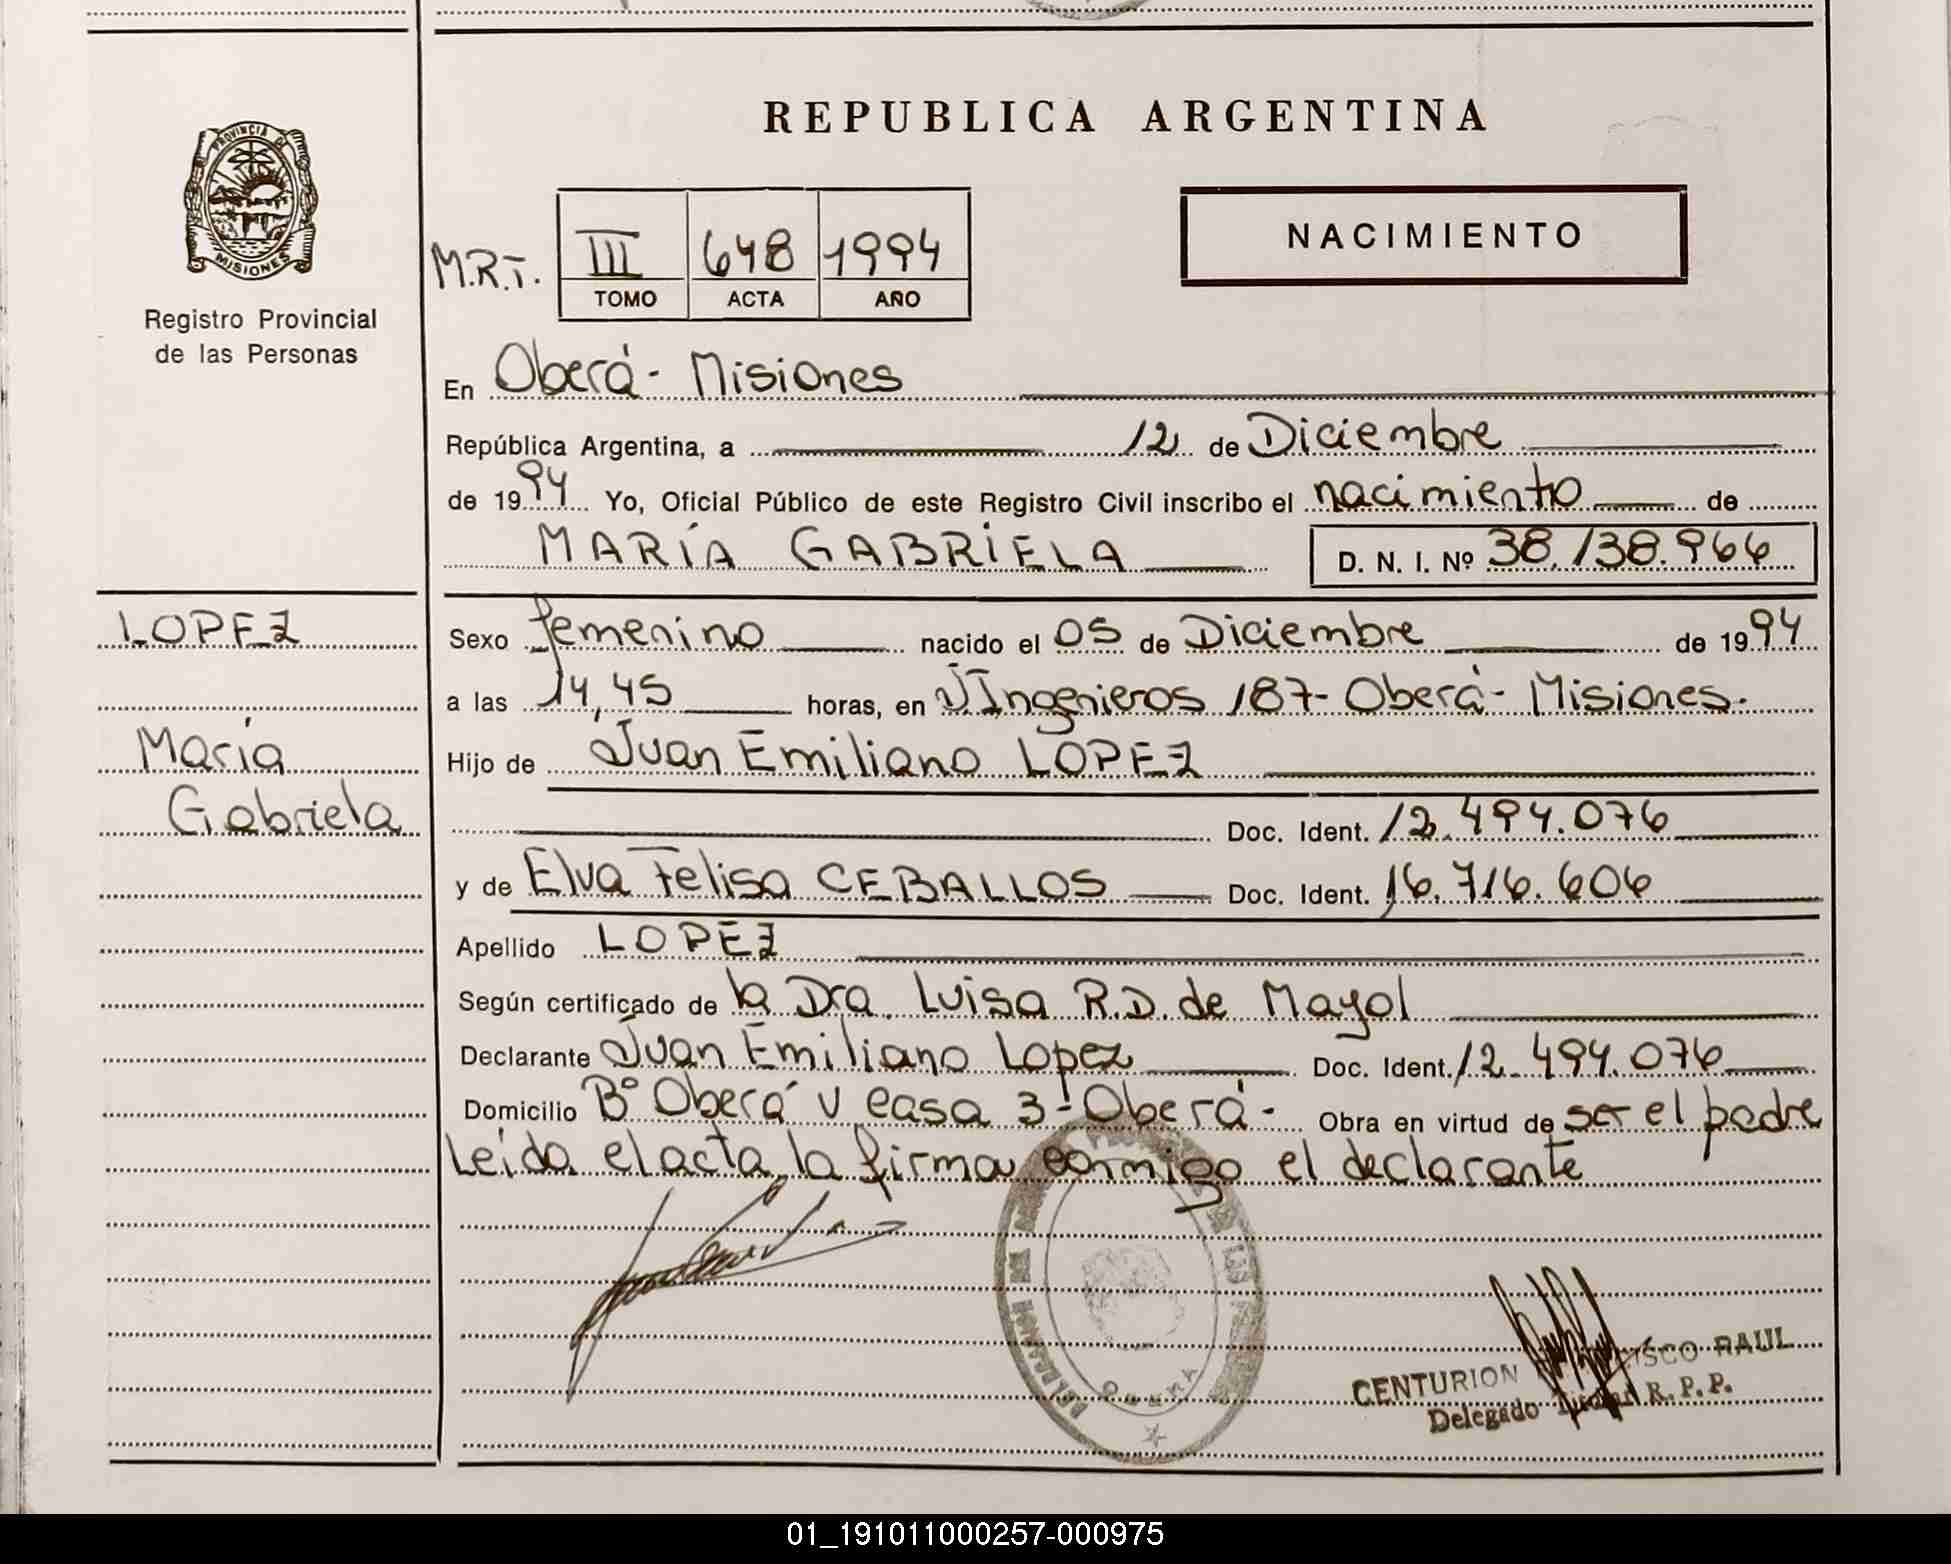 REPUBLICA ARGENTINA
PROVINCIA DE
MISIONES
Registro Provincial
de las Personas
NACIMIENTO
M.R.T. III 648 1994
TOMO ACTA AÑO
En Oberá - Misiones
República Argentina, a 12 de Diciembre
de 1994 Yo, Oficial Público de este Registro Civil inscribo el nacimiento de
MARÍA GABRIELA D. N. I. Nº 38.138.966
LOPEZ
María
Gabriela
Sexo femenino nacido el 05 de Diciembre de 1994
a las 14,45 horas, en J.Ingenieros 187- Oberá - Misiones.
Hijo de Juan Emiliano LOPEZ
Doc. Ident. 12.494.076
y de Elva Felisa CEBALLOS Doc. Ident. 16.716.606
Apellido LOPEZ
Según certificado de la Dra. Luisa R.D. de Mayol
Declarante Juan Emiliano Lopez Doc. Ident. 12.494.076
Domicilio Bº Oberá V casa 3 - Oberá - Obra en virtud de ser el padre
Leída el acta, la firma conmigo el declarante
OBERA
CENTURION RAUL
Delegado Titular R. P. P.
01_191011000257-000975